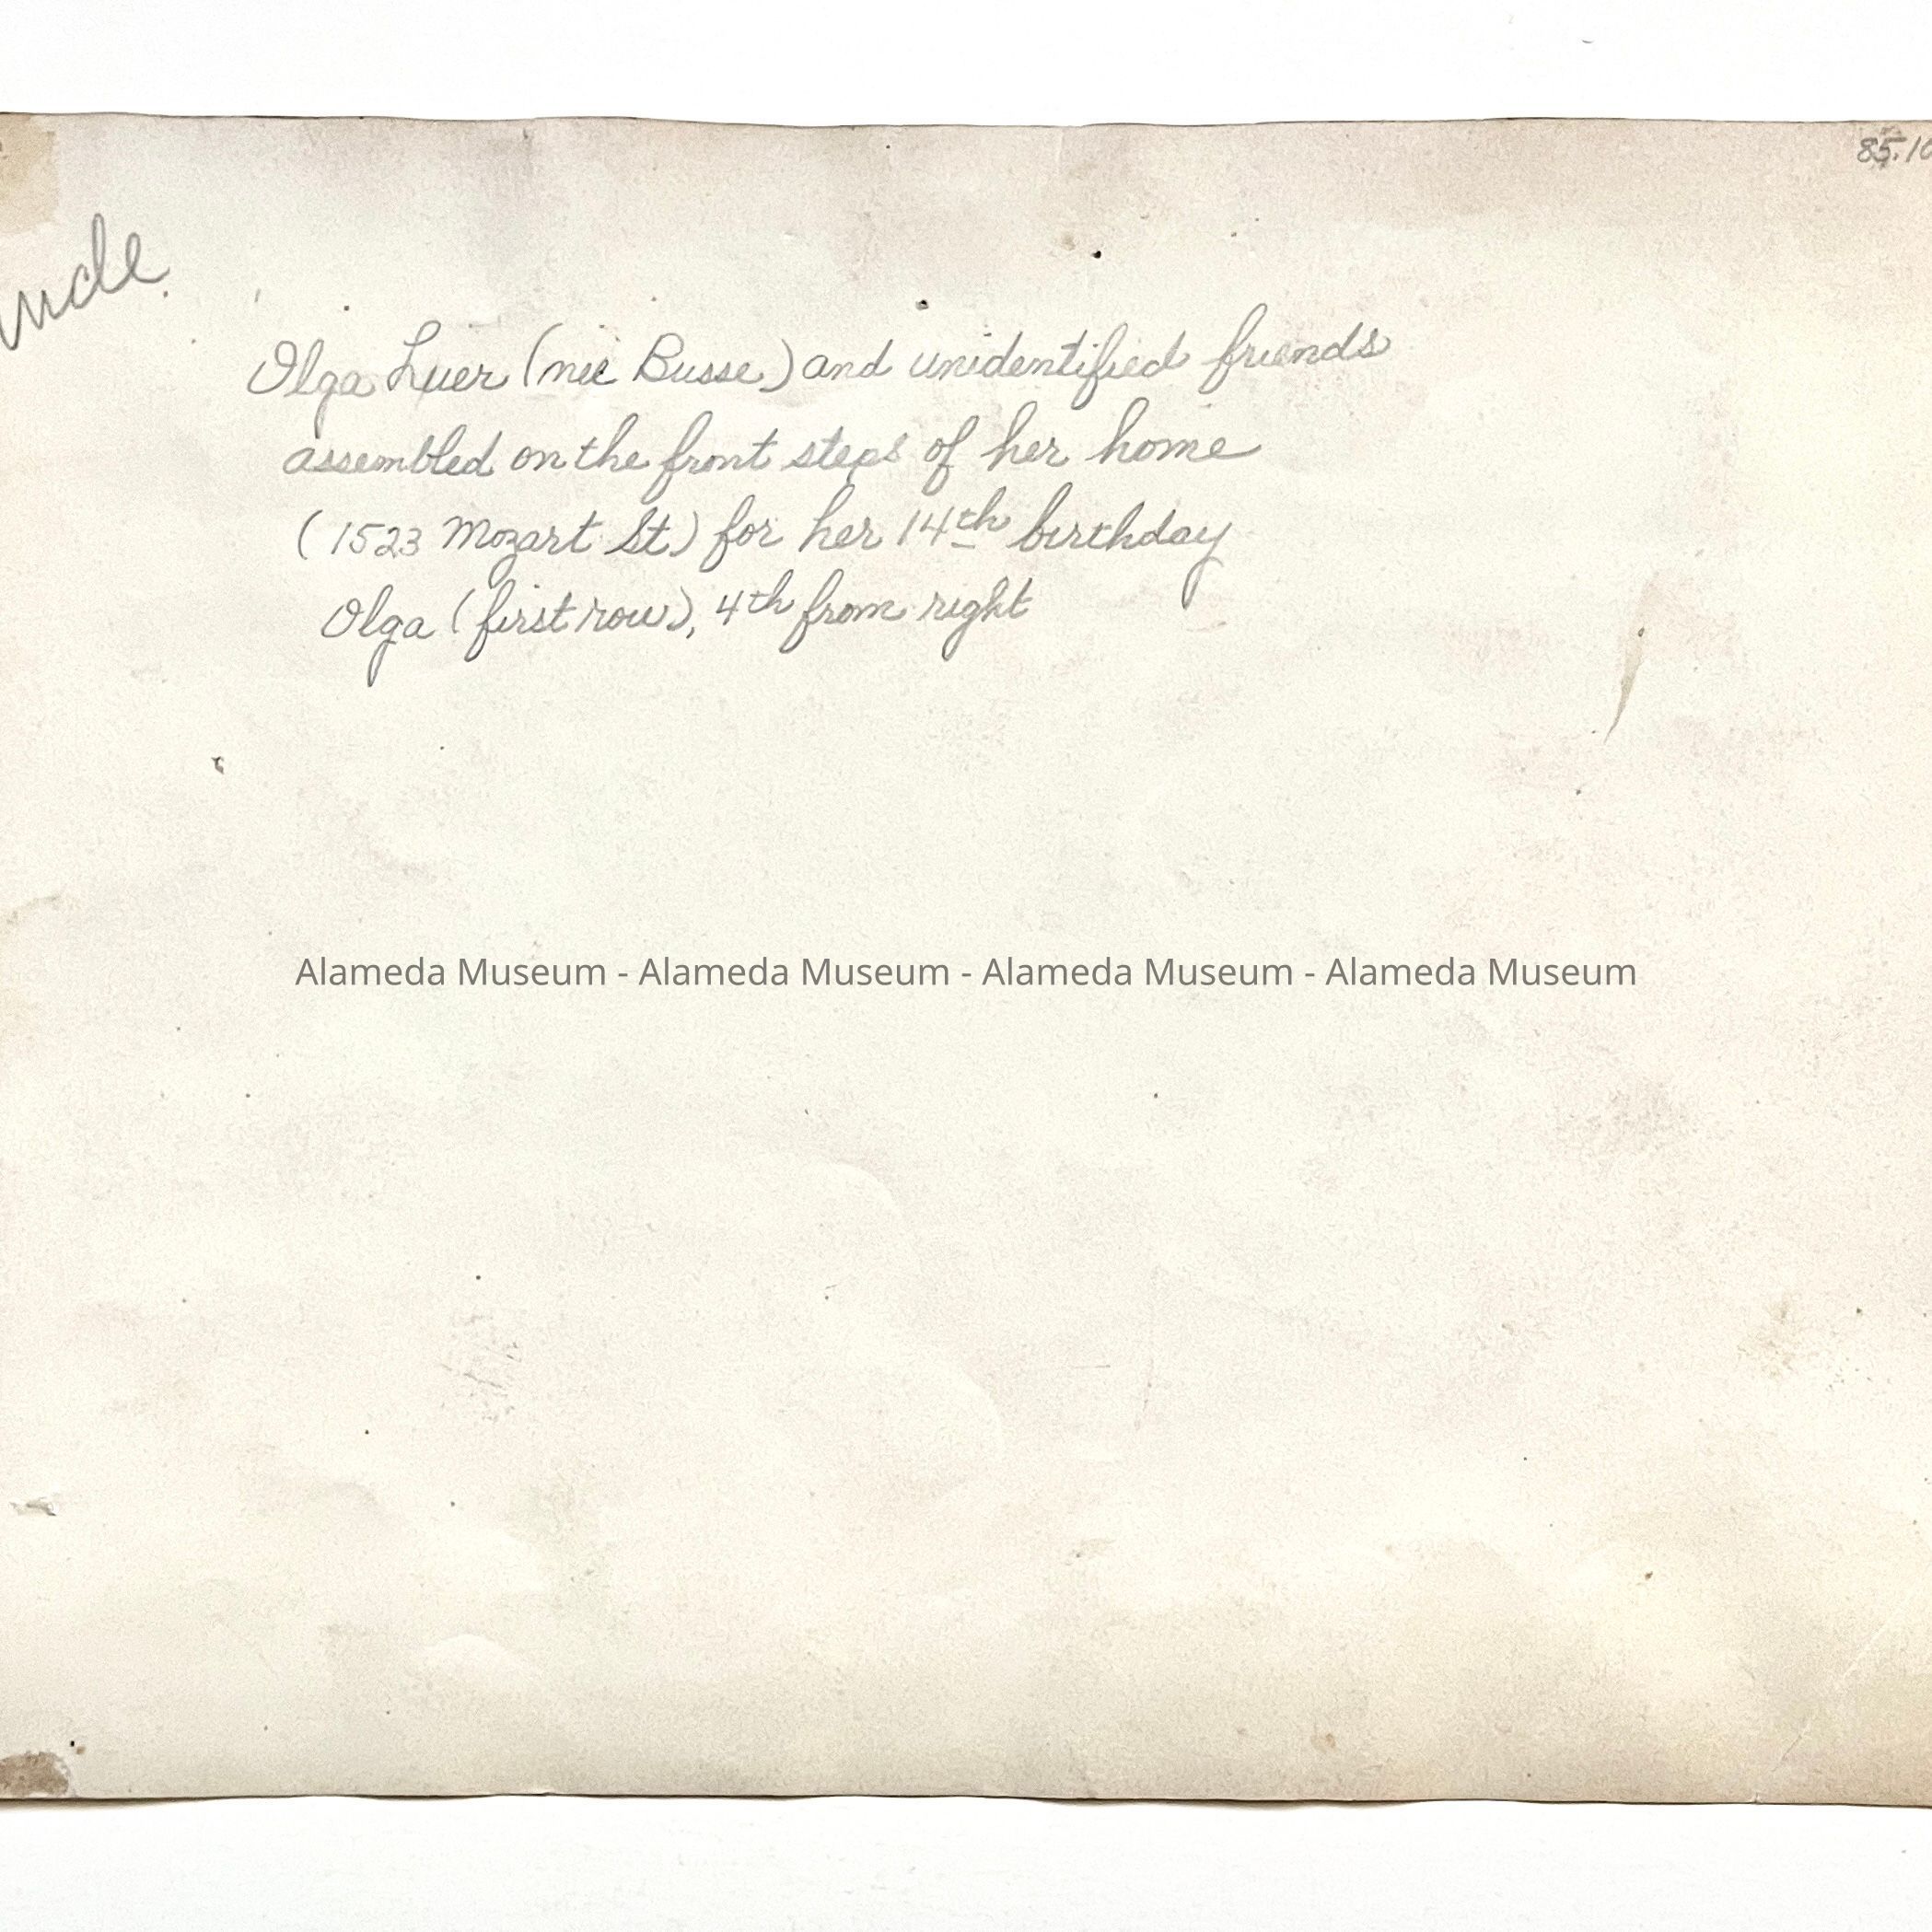 85.10
Olga Luer (neé Busse) and unidentified friends
assembled on the front steps of her home
(1523 Mozart St) for her 14th birthday
Olga (first row), 4th from right
Alameda Museum - Alameda Museum - Alameda Museum - Alameda Museum